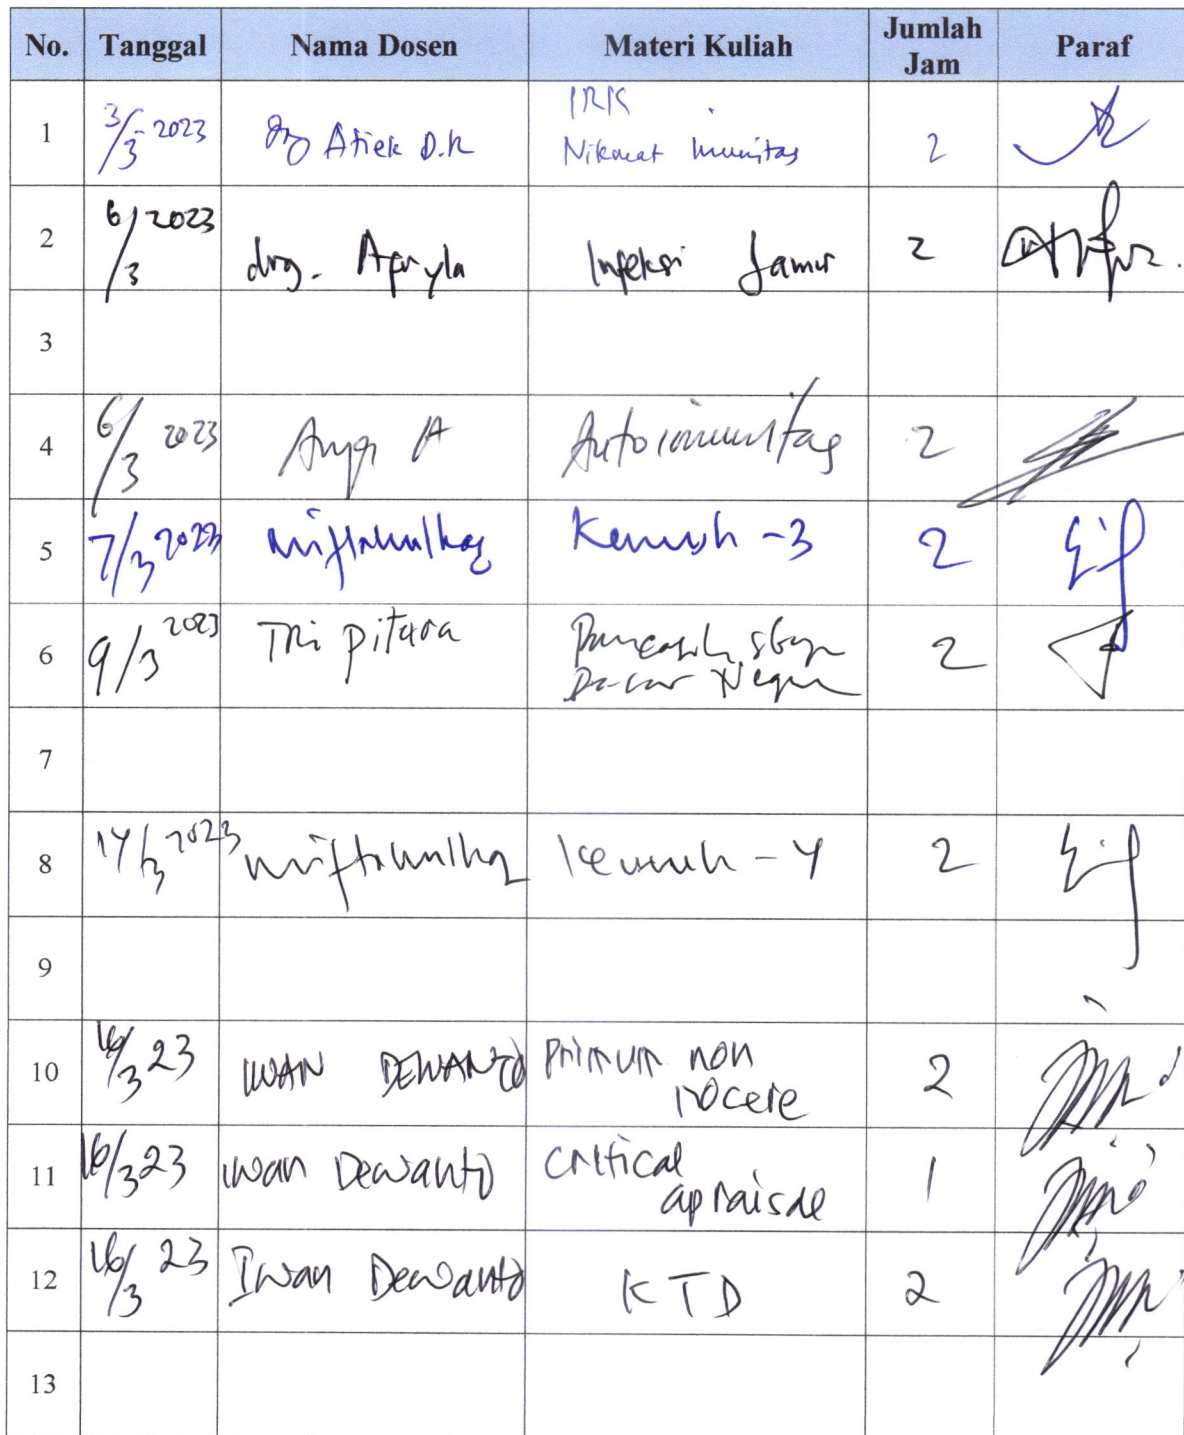 No. Tanggal Nama Dosen Materi Kuliah Jumlah Jam Paraf
1 3/3 2023 drg Atiek D.R IRK 2
Nikmat Imunitas
2 6/3 2023 drg. Apryla Infeksi Jamur 2
3
4 6/3 2023 Autoimunitas 2
5 7/3 2023 miftahulhaq Kemuh -3 2
6 9/3 2023 Tri pitara Pancasila sbgn 2
Dasar Negara
7
8 14/3 2023 miftahulhaq Kemuh - 4 2
9
10 16/3 23 IWAN DEWANTO primum non 2
nocere
11 16/3 23 iwan Dewanto critical 1
appraisal
12 16/3 23 Iwan Dewanto KTD 2
13